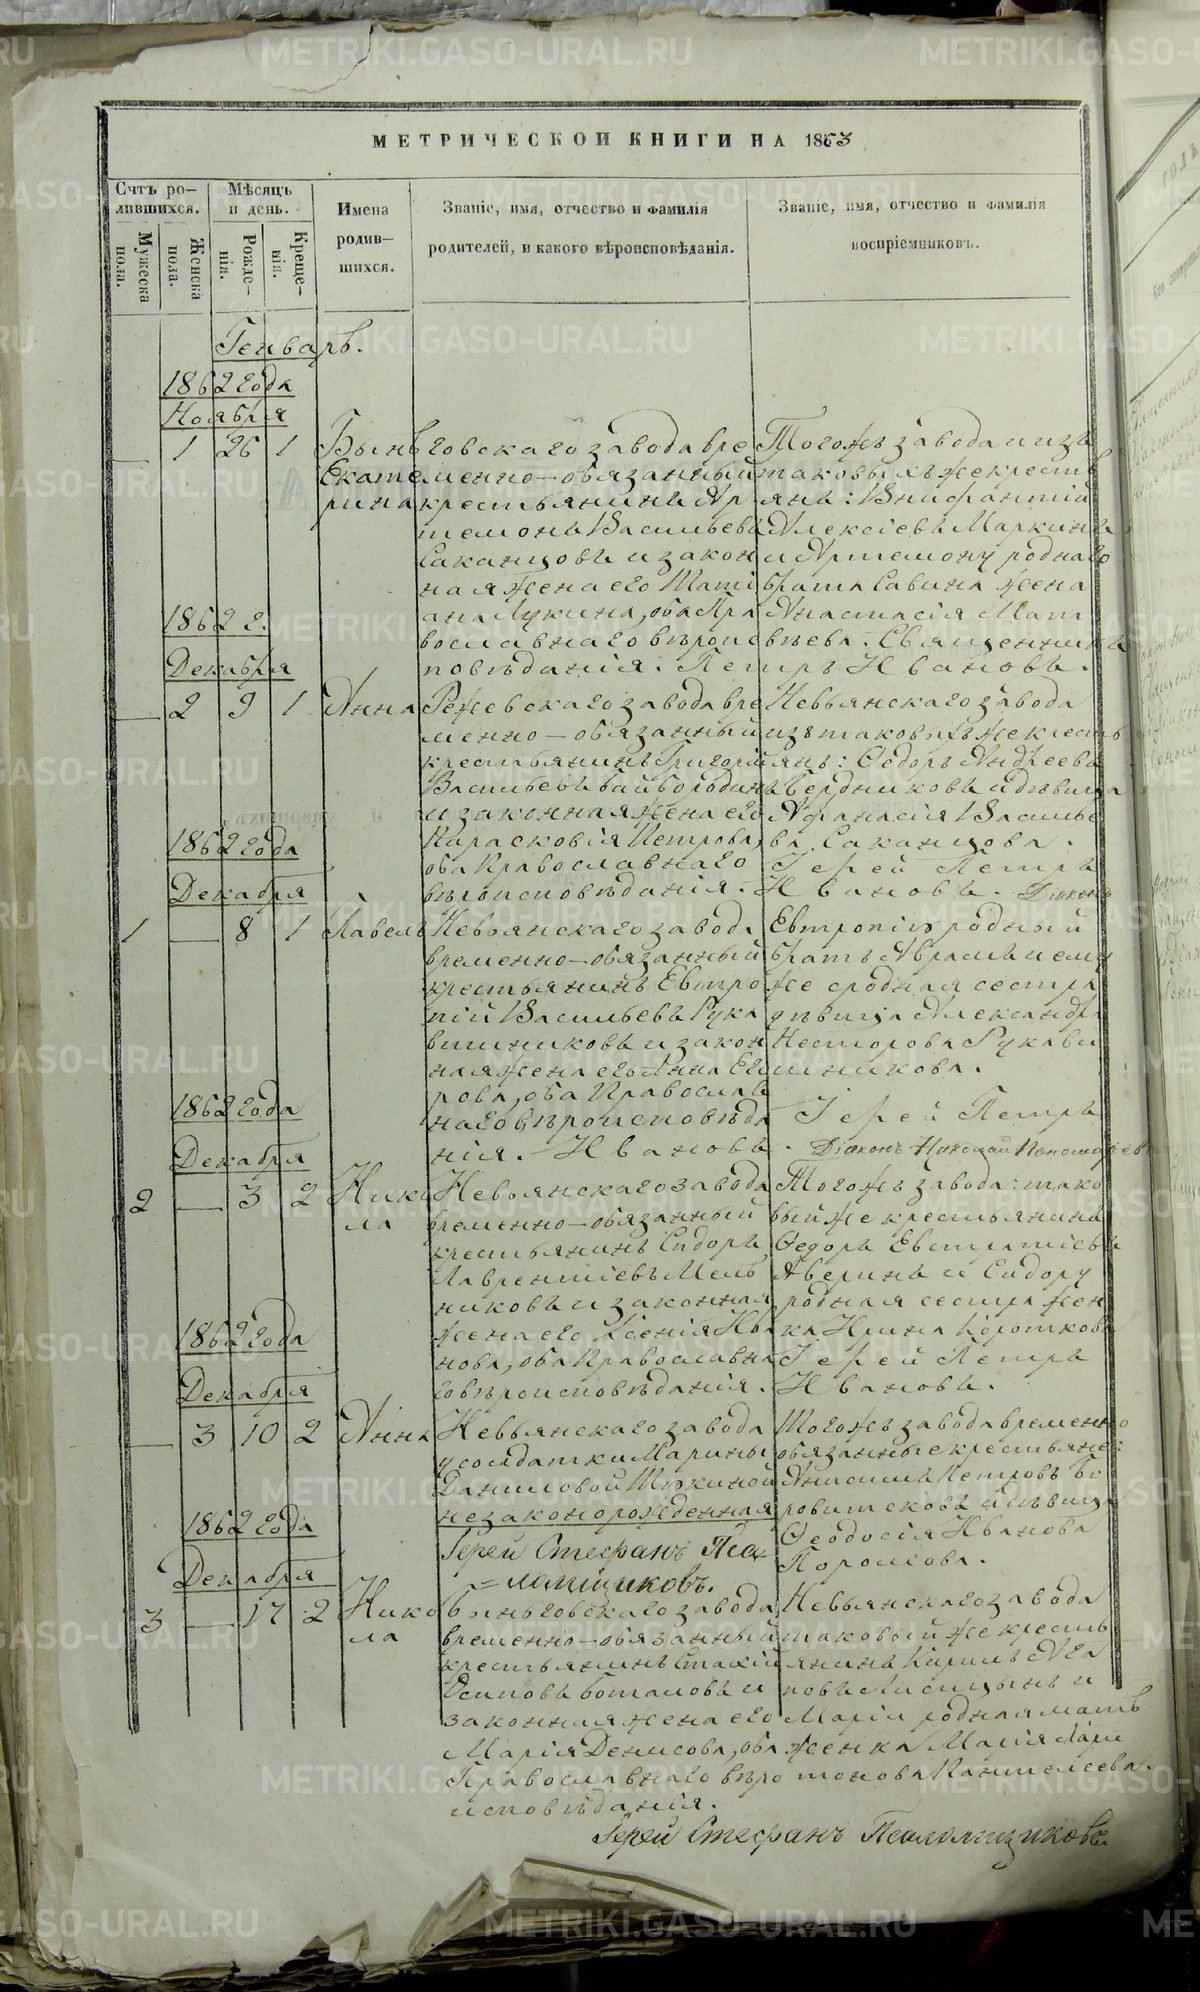 МЕТРИЧЕСКОЙ КНИГИ НА 1863
Счтъ ро-
дившихся.
Мѣсяцъ
и день.
Имена
родив-
шихся.
Званіе, имя, отчество и фамилія
родителей, и какого вѣроисповѣданія.
Званіе, имя, отчество и фамилія
воспріемниковъ.
Мужеска
пола.
Женска
пола.
Рожде-
нія.
Креще-
нія.
Генварь.
1862 года
Ноября
1 26 1
Екате
рина
Быньговскаго завода вре
менно-обязанный
крестьянинъ Ар
темонъ Васильевъ
Саканцовъ и закон
ная жена его Тати
ана Лукина, оба Пра
вославнаго вѣроис
повѣданія.
Тогожъ завода и изъ
таковыхъ же кресть
янъ: Внифантій
Алексіевъ Маркинъ
и Артемону роднаго
брата Савина жена
Анастасія Мат
вѣева. Священникъ
Петръ Ивановъ.
1862 г.
Декабря
2 9 1
Анна
Режевскаго завода вре
менно-обязанный
крестьянинъ Григорій
Васильевъ Вайбородинъ
и законная жена его
Парасковія Петрова,
оба Православнаго
вѣроисповѣданія.
Невьянскаго завода
изъ таковыхъ же кресть
янъ: Ѳедоръ Андреевъ
Бердниковъ и дѣвица
Афанасія Василье
ва Саканцова.
Іерей Петръ
Ивановъ. Діаконъ
1862 года
Декабря
1 8 1
Павелъ
Невьянскаго завода
временно-обязанный
крестьянинъ Евтро
пій Васильевъ Рука
вишниковъ и закон
ная жена его Анна Его
рова, оба Православ
наго вѣроисповѣда
нія.
Евтропію родный
братъ Абрамъ и ему
же сродная сестра
дѣвица Александра
Несторова Рукави
шникова.
Іерей Петръ
Ивановъ. Діаконъ Николай Пономаревъ
1862 года
Декабря
2 3 2
Нико
ла
Невьянскаго завода
временно-обязанный
крестьянинъ Сидоръ
Лаврентіевъ Мель
никовъ и законная
жена его Ксенія Ива
нова, оба Православна
го вѣроисповѣданія.
Тогожъ завода: тако
вый же крестьянинъ
Ѳедоръ Евстратіевъ
Аверинъ и Сидору
родная сестра жен
ка Ирина Короткова
Іерей Петръ
Ивановъ.
1862 года
Декабря
3 10 2
Анна
Невьянскаго завода
у солдатки Марины
Даниловой Шикиной
незаконорожденная
Іерей Стефанъ Пса-
=ломщиковъ.
Тогожъ завода временно
обязанные крестьяне:
Анисимъ Петровъ Бо
ровитсковъ и дѣвица
Ѳеодосія Иванова
Поромова.
1862 года
Декабря
3 17 2
Нико
ла
Быньговскаго завода
временно-обязанный
крестьянинъ Стахій
Осиповъ Боталовъ и
законная жена его
Марія Денисова, оба
Православнаго вѣро
исповѣданія.
Невьянскаго завода
таковый же кресть
янинъ Кирилъ Ага
повъ Лисицынъ и
Маріи родная мать
женка Марія Лари
онова Пантелеева.
Іерей Стефанъ Псаломщиковъ.
METRIKI.GASO-URAL.RU